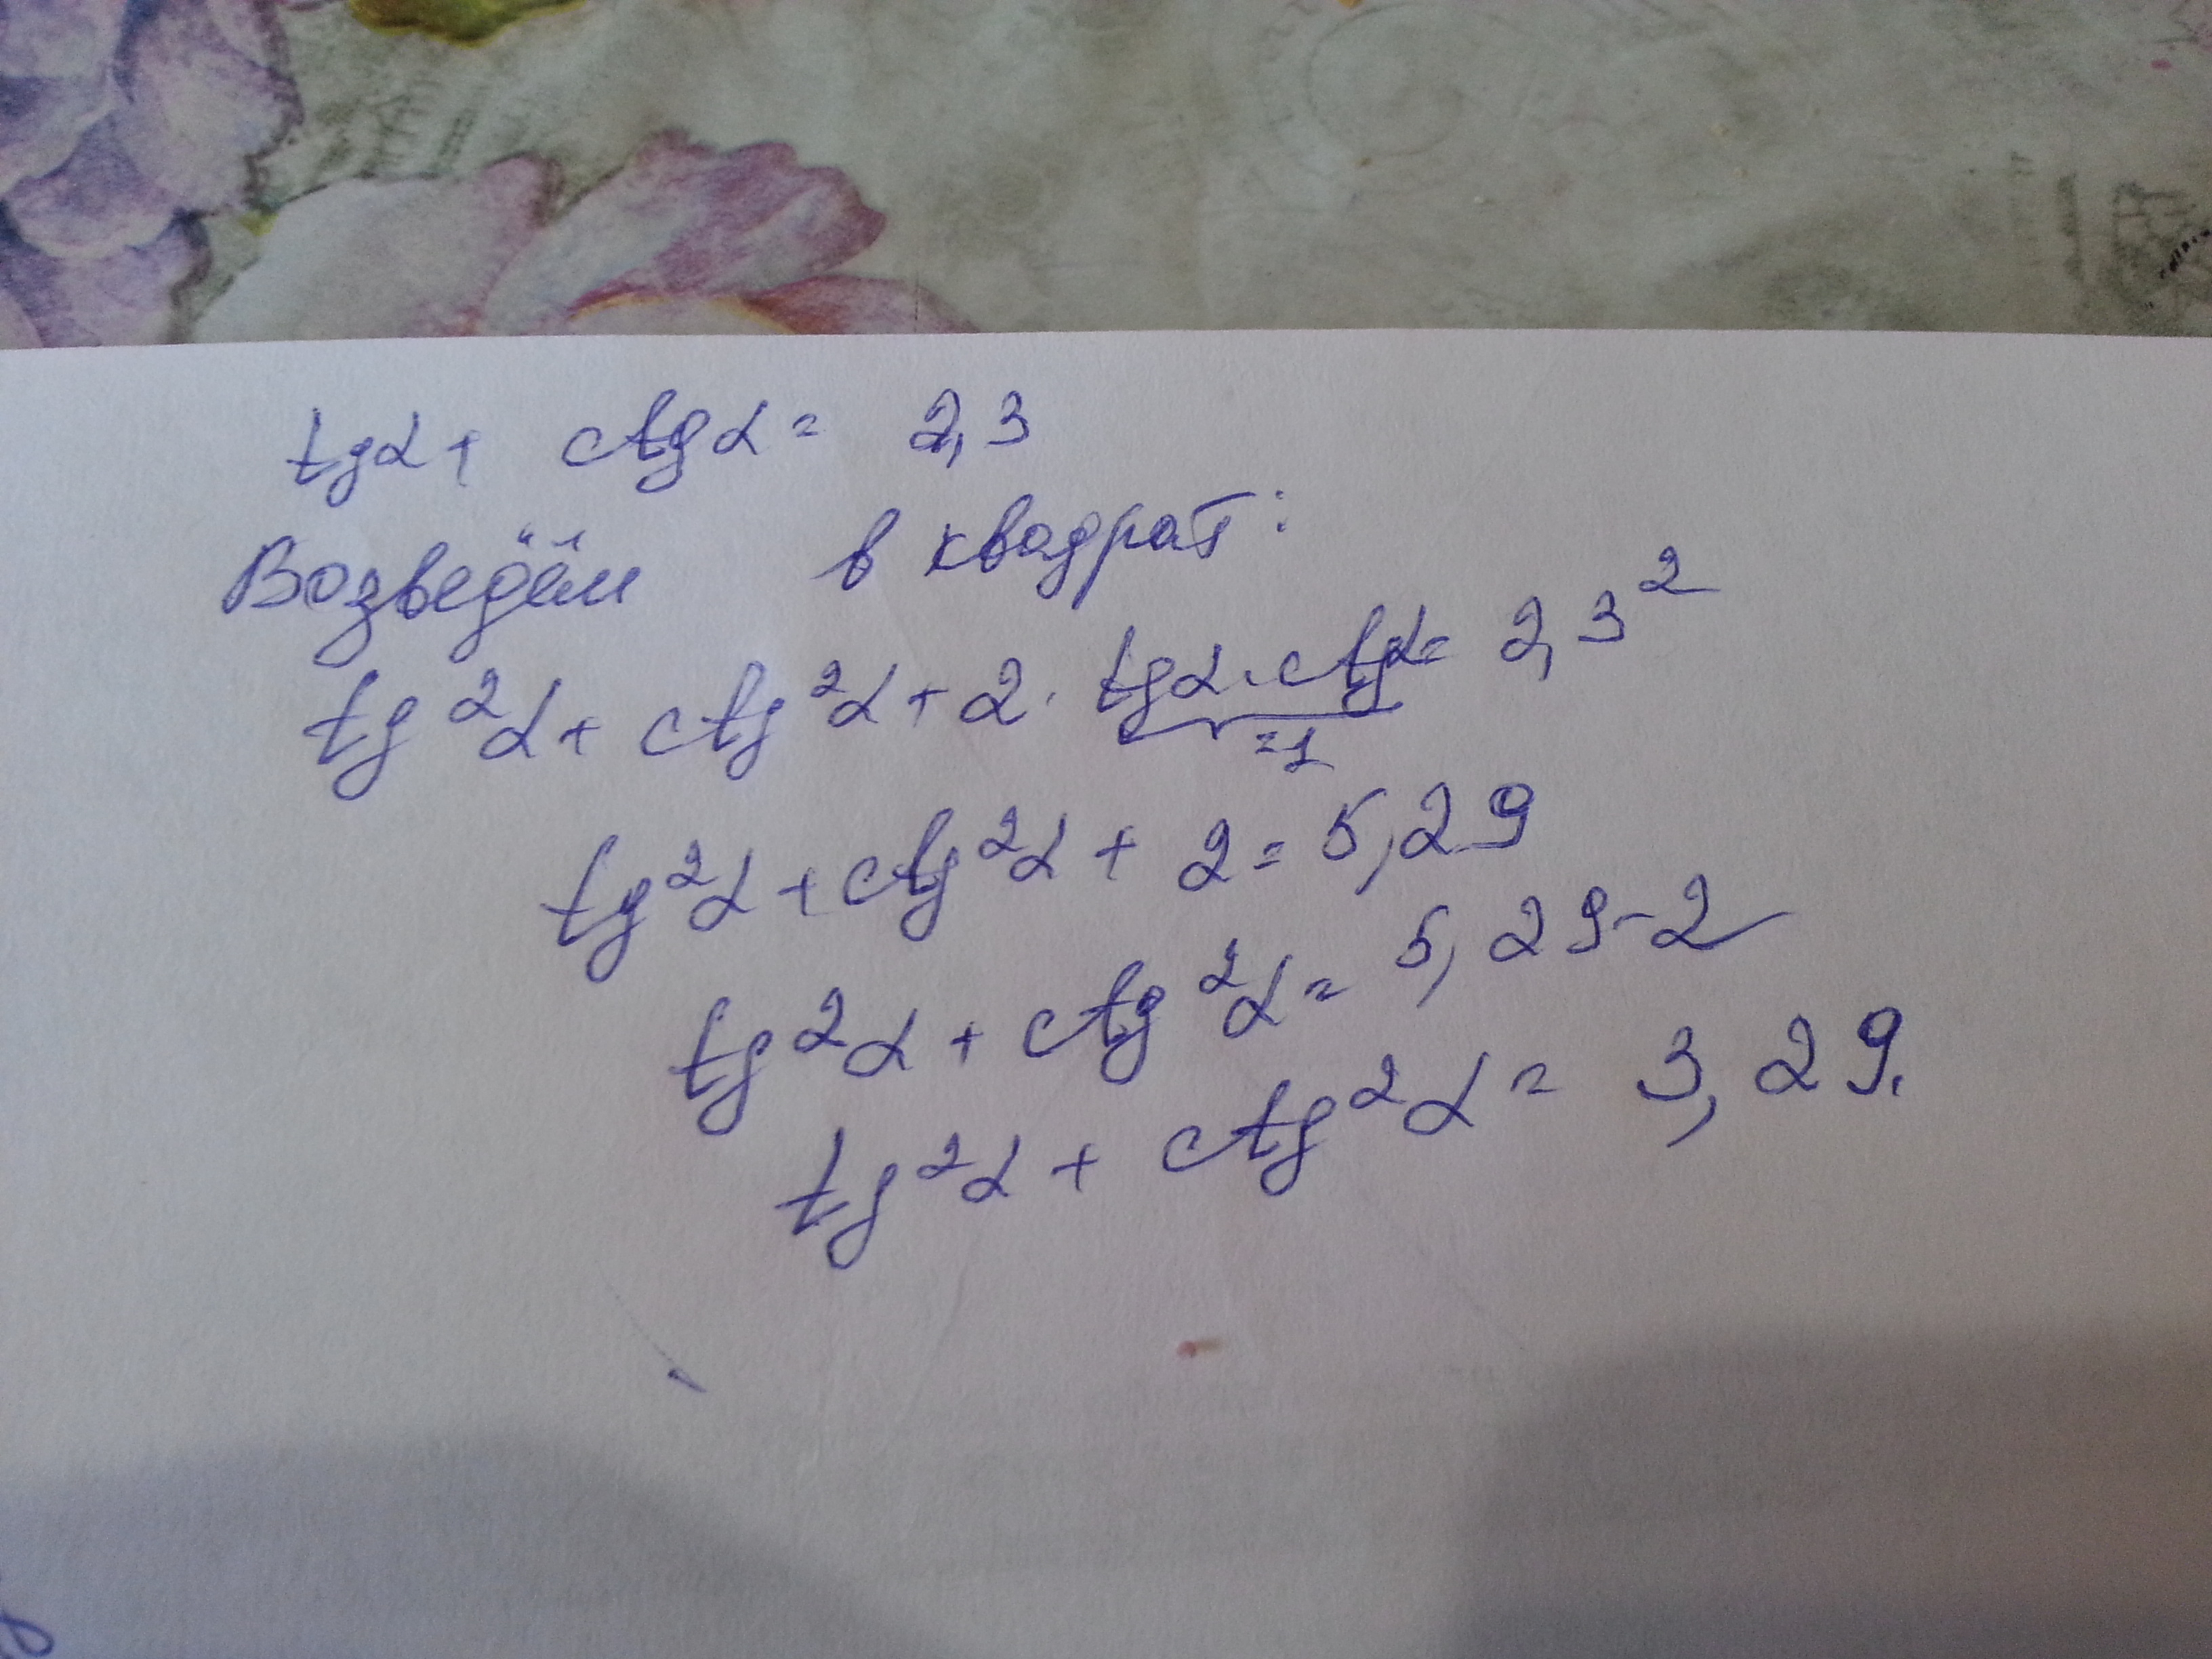 tgα + ctgα = 2,3
Возведём в квадрат:
tg²α + ctg²α + 2 · tgα · ctgα = 2,3²
=1
tg²α + ctg²α + 2 = 5,29
tg²α + ctg²α = 5,29-2
tg²α + ctg²α = 3,29.